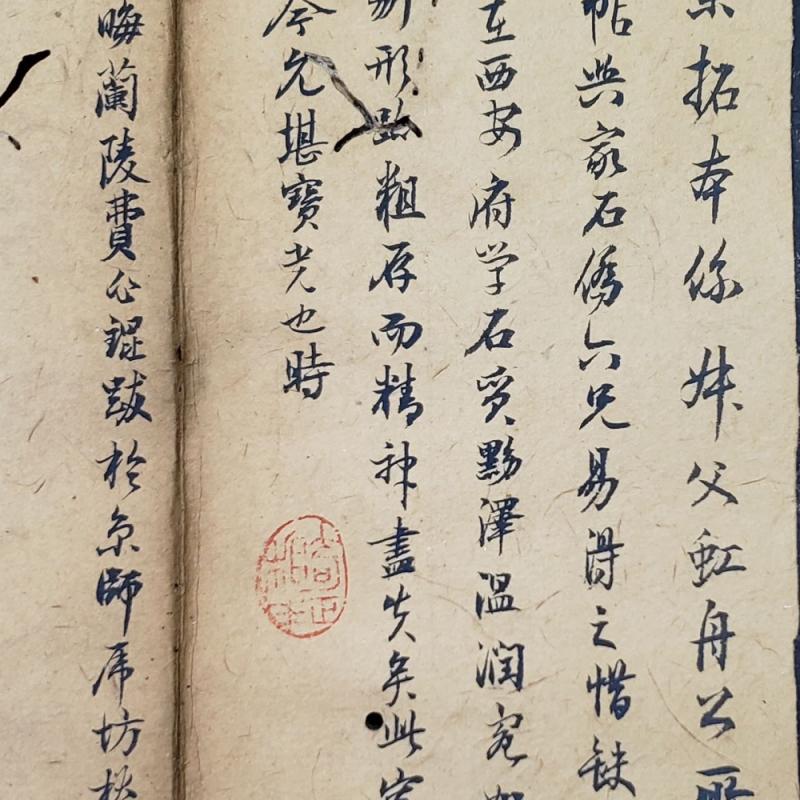 拓本係叔父虹舟公所
帖與家石僑六兄易得之惜缺
在西安府学石質黝澤温潤宛如
形跡粗存而精神盡失矣此宋
今尤堪寶者也時
晦蘭陵費公錕跋於京師虎坊橋